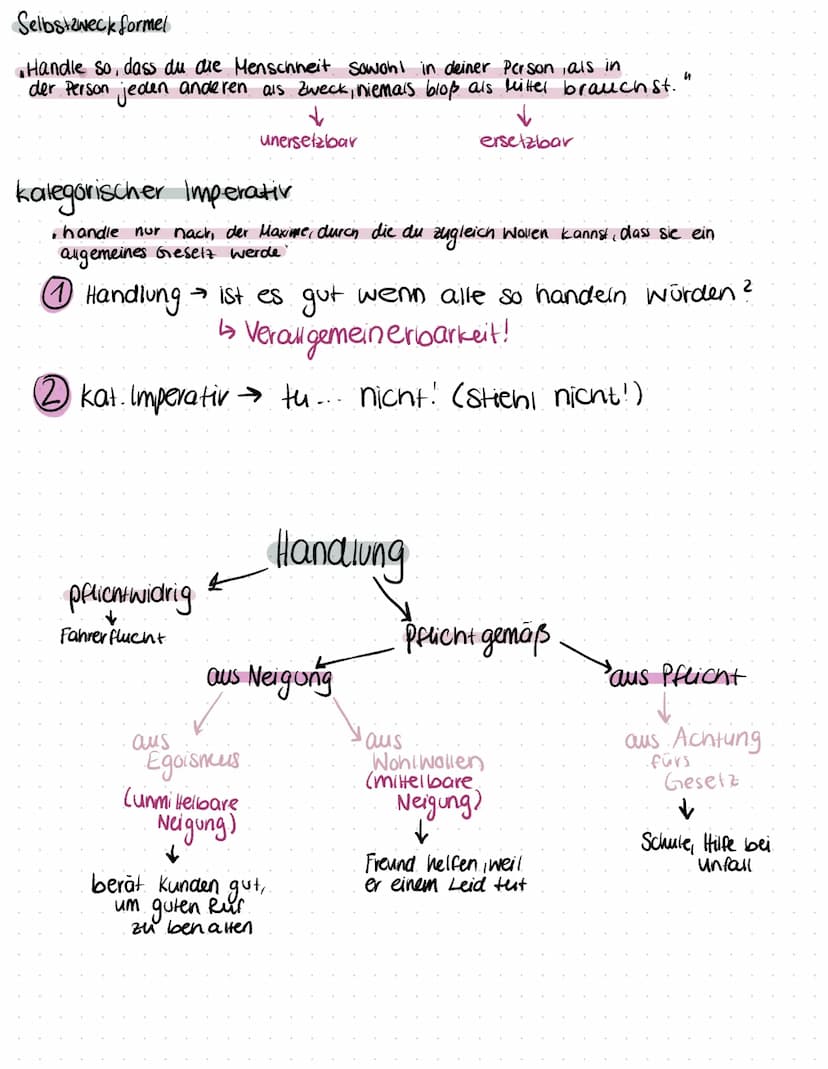 Selbstzweckformel
„Handle so, dass du die Menschheit sowohl in deiner Person, als in
der Person jeden anderen als Zweck, niemals bloß als Mittel brauchst."
↓ ↓
unersetzbar ersetzbar
kategorischer Imperativ
„handle nur nach, der Maxime, durch die du zugleich wollen kannst, dass sie ein
allgemeines Gesetz werde"
① Handlung → ist es gut wenn alle so handeln würden?
↳ Verallgemeinerbarkeit!
② kat. Imperativ → tu... nicht! (Stiehl nicht!)
Handlung
pflichtwidrig
↓
Fahrerflucht
Pflichtgemäß
aus Neigung
aus Pflicht
aus
Egoismus
(unmittelbare
Neigung)
↓
berät Kunden gut,
um guten Ruf
zu behalten
aus
Wohlwollen
(mittelbare
Neigung)
↓
Freund helfen, weil
er einem Leid tut
↓
aus Achtung
fürs
Gesetz
↓
Schule, Hilfe bei
Unfall